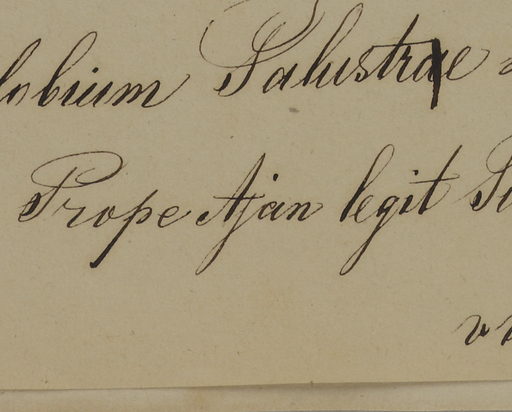 lobium Palustrae
Prope Ajan legit